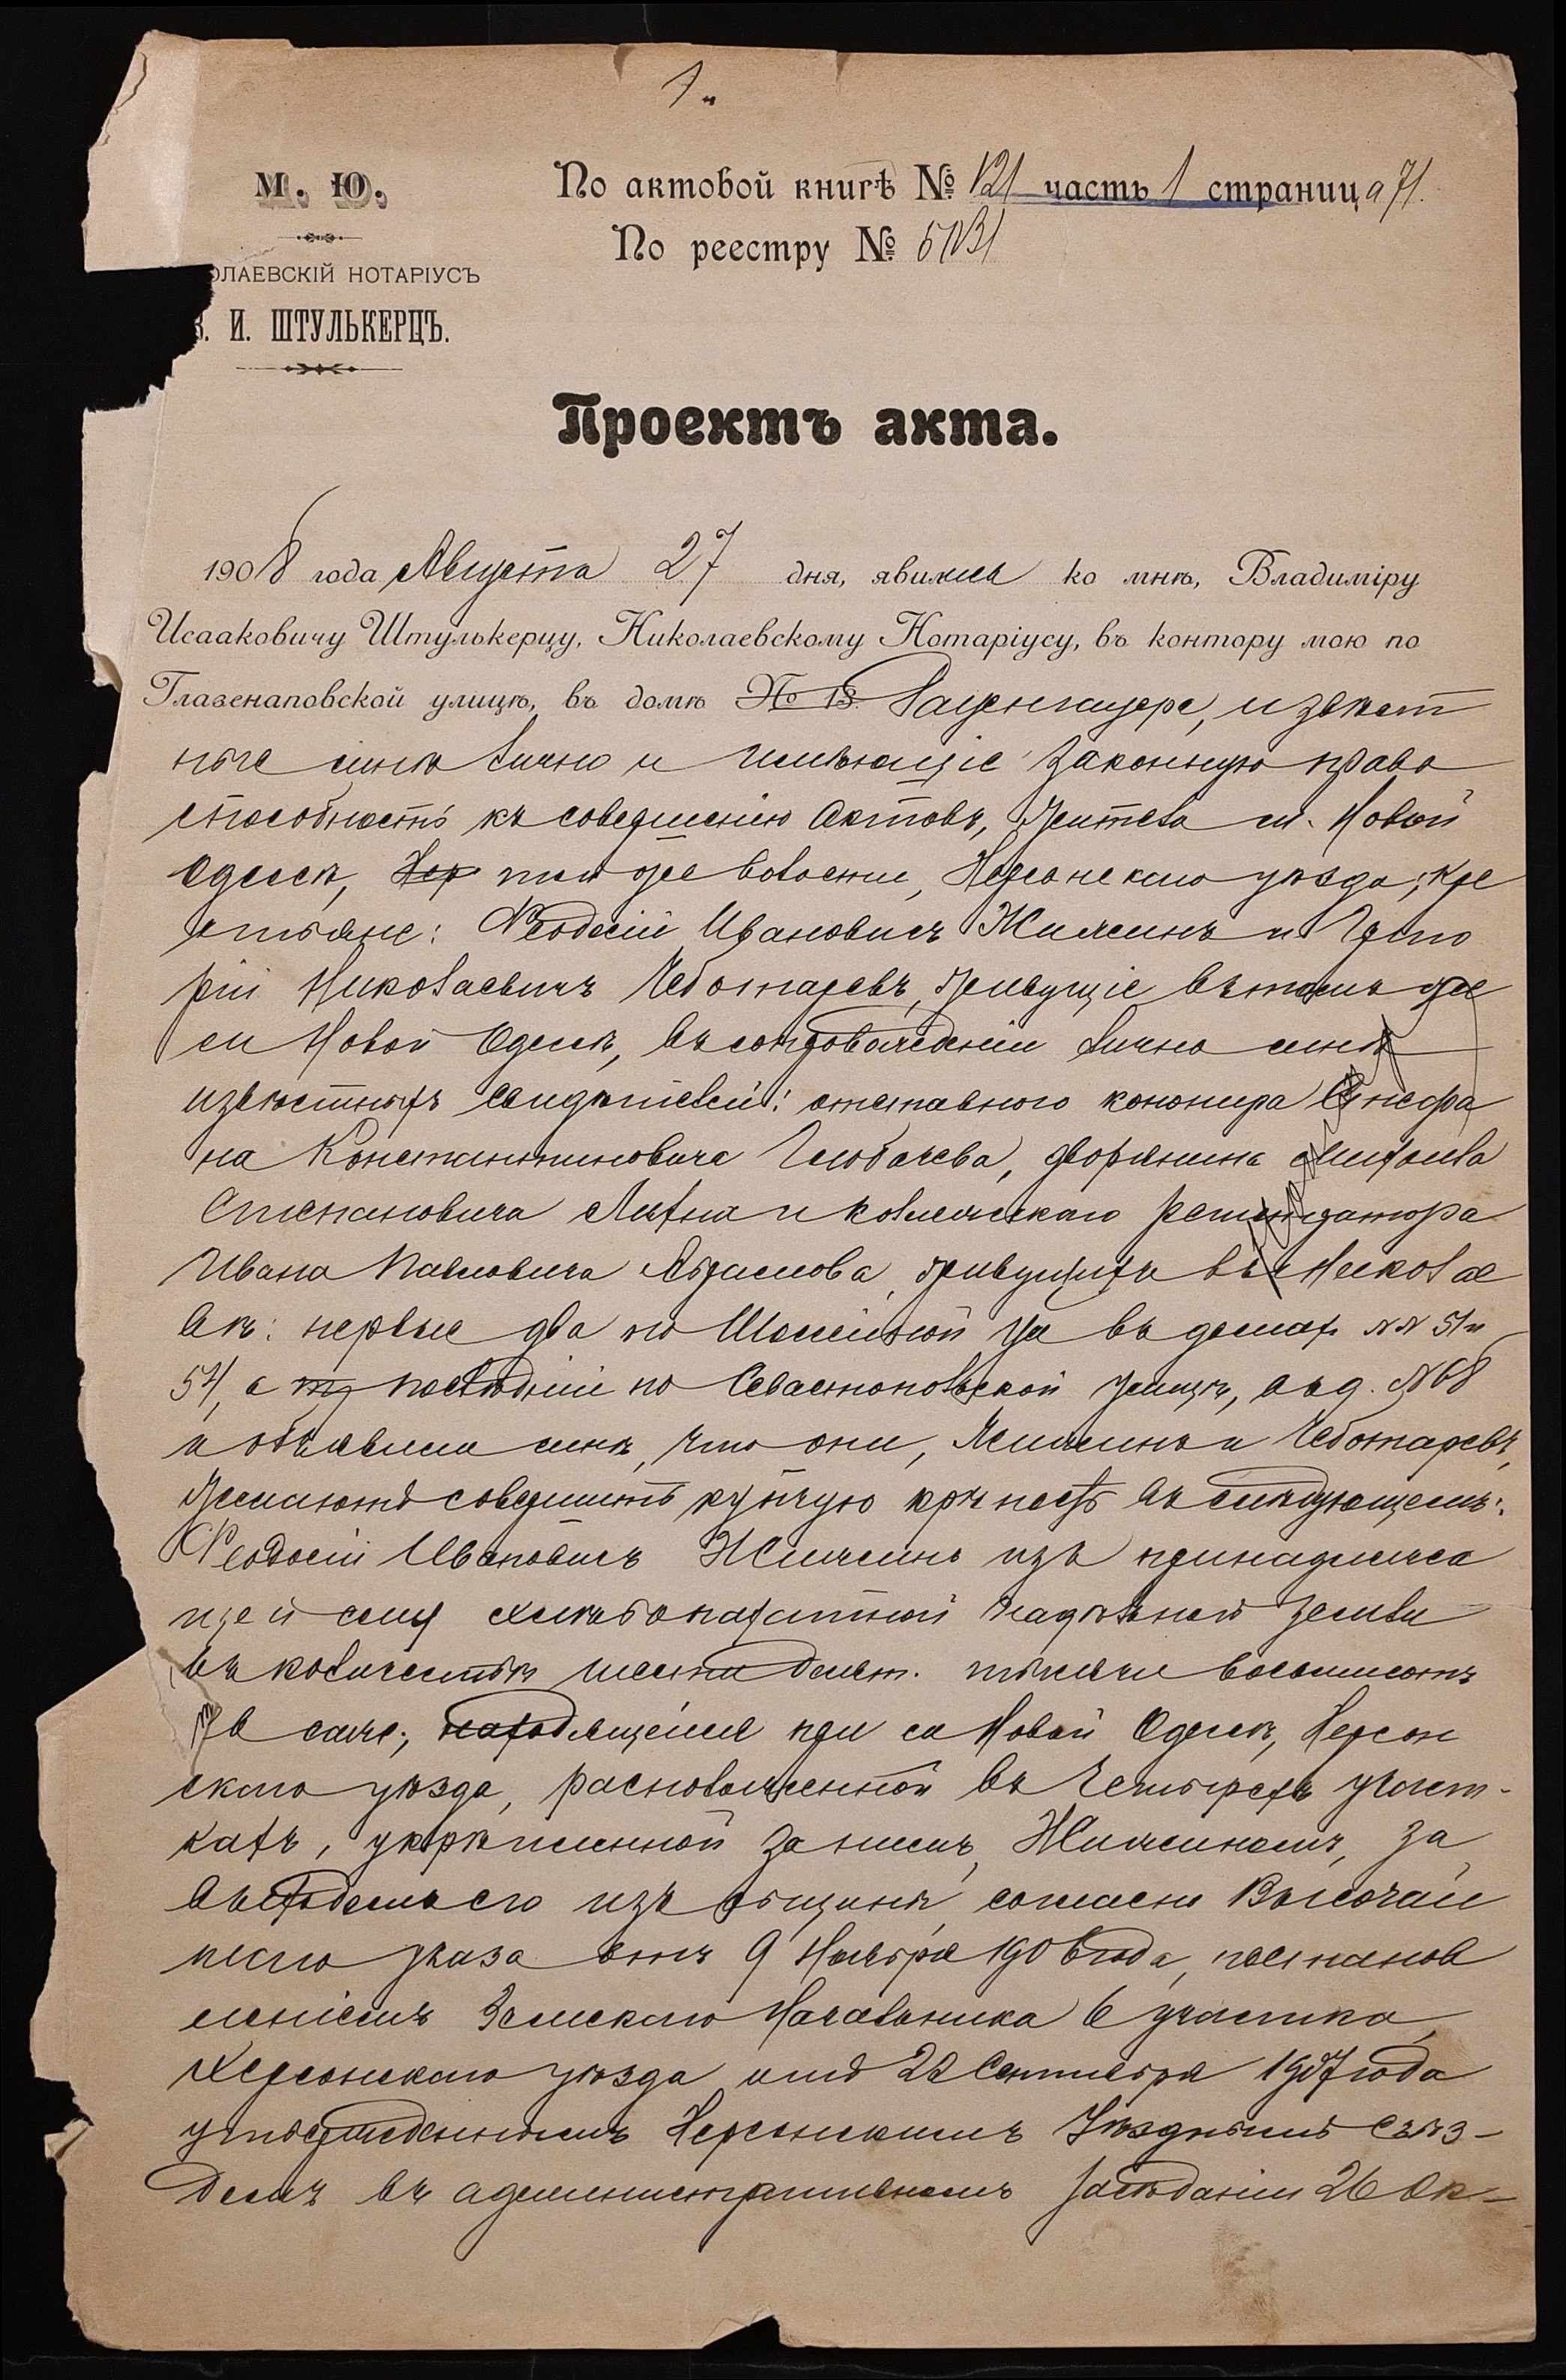 1.
М. Ю.
По актовой книгѣ № 121 часть 1 страница 71.
По реестру № 5131
ОЛАЕВСКІЙ НОТАРІУСЪ
В. И. ШТУЛЬКЕРЦЪ.
Проектъ акта.
1908 года Августа 27 дня, явились ко мнѣ, Владиміру
Исааковичу Штулькерцу, Николаевскому Нотаріусу, въ контору мою по
Глазенаповской улицѣ, въ домѣ № 13. извѣст
ные мнѣ лично и имѣющіе законную право
способность къ совершенію актовъ, жители м. Новой
Одессы, Хер той же волости, Херсонскаго уѣзда, кре
стьяне: Ѳеодосій Ивановичъ Жижинъ и Григо
рій Николаевичъ Чеботаревъ, живущіе въ томъ же
м Новой Одессѣ, въ сопровожденіи лично мнѣ
извѣстныхъ свидѣтелей: отставного канонира
на Константиновича дворянина Михаила
Степановича и коллежскаго регистратора
Ивана Павловича Абрамова, живущихъ въ Никола
евѣ: первые два по ул въ домах NN 51 и
54, а последній по Севастопольской улицѣ, въ д. № 68
и объявили мнѣ, что они, Жижинъ и Чеботаревъ,
желаютъ совершить купчую крѣпость въ слѣдующемъ:
Ѳеодосій Ивановичъ Жижинъ изъ принадлежа
щей ему надѣльной земли
въ количествѣ шести десят. тысячи восьмисотъ
саж., находящейся при м Новой Одессѣ, Херсон
скаго уѣзда, расположенной въ четырехъ участ-
кахъ, укрѣпленной за нимъ, Жижинымъ, за
выходомъ его изъ общины согласно Высочай
шаго указа отъ 9 Ноября 1906 года, постанов
леніемъ Земскаго Начальника 6 участка,
Херсонскаго уѣзда отъ 22 Сентября 1907 года
утвержденнымъ Херсонскимъ Уѣзднымъ Съѣз-
домъ въ административномъ засѣданіи 26 Ок-